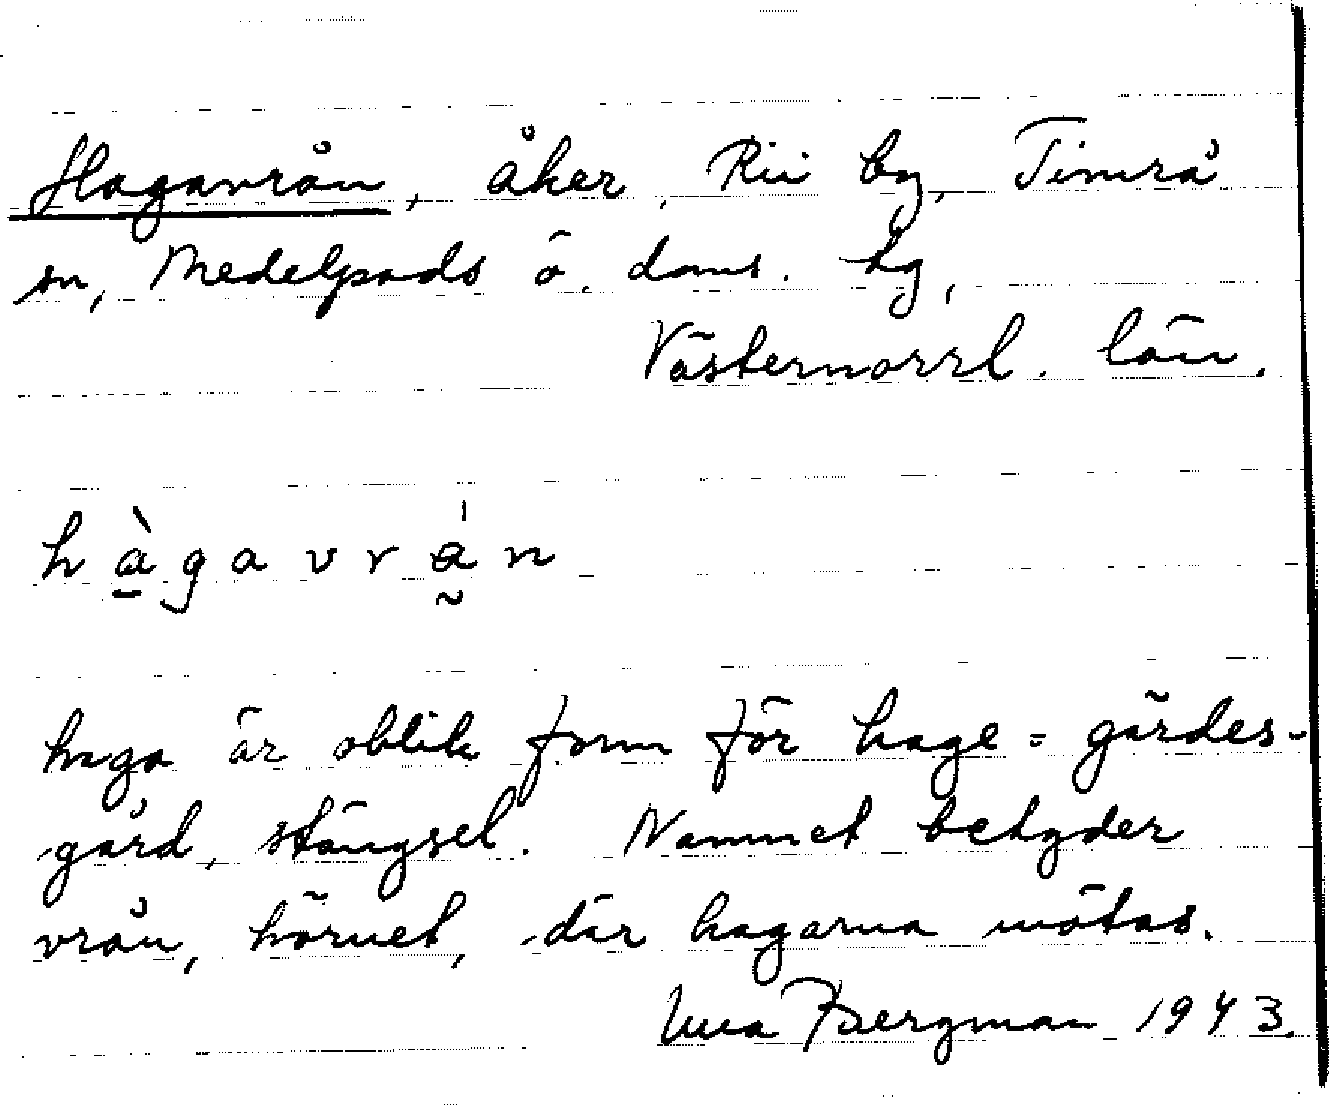 Hagavrån, åker, Rii by, Timrå
sn, Medelpads ö. doms. hg,
Västernorrl. län.
hàgavrån
haga är oblik form för hage = gärdes-
gård, stängsel. Namnet betyder
vrån, hörnet, där hagarna mötas.
Bergman 1943.